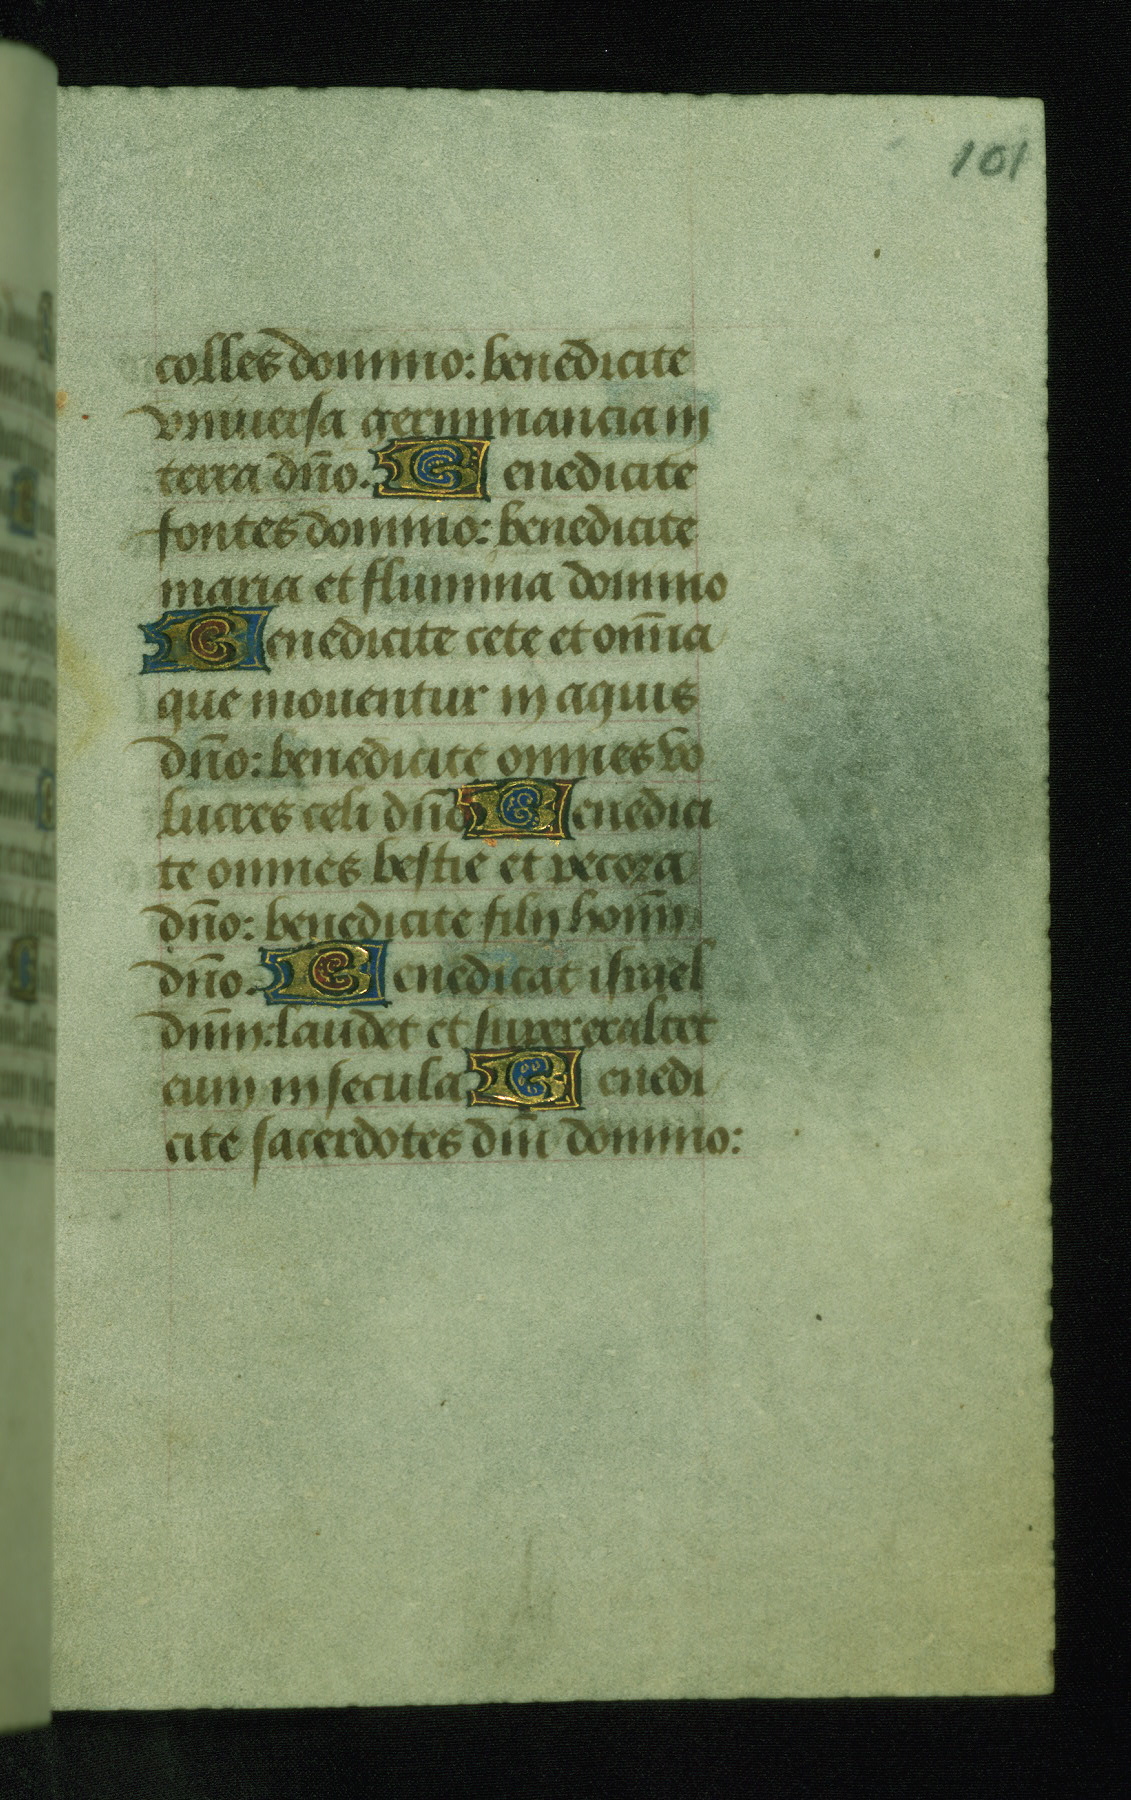 101
colles domino: benedicite
vniuersa germinancia in
terra dño. Benedicite
fontes domino: benedicite
maria et flumina domino
Benedicite cete et om̄ia
que mouentur in aquis
dño: benedicite omnes vo
lucres celi dño Benedici
te omnes bestie et pecora
dño: benedicite filij homī
dño. Benedicat israel
dñm: laudet et superexaltet
eum in secula Benedi
cite sacerdotes dñi domino: